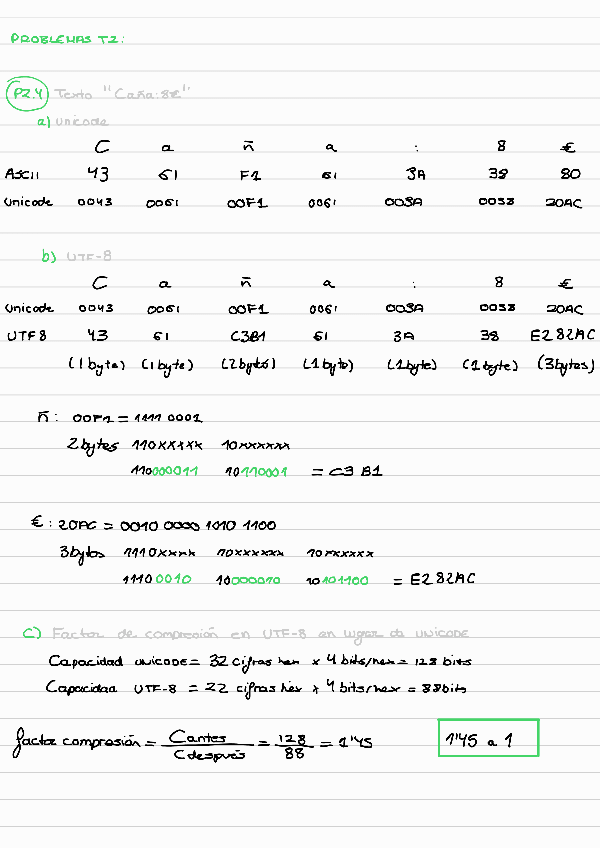 PROBLEMAS T2:
P2.4 Texto "Caña:8€"
a) Unicode
C a ñ a : 8 €
ASCII 43 61 F1 61 3A 38 80
Unicode 0043 0061 00F1 0061 003A 0038 20AC
b) UTF-8
C a ñ a : 8 €
Unicode 0043 0061 00F1 0061 003A 0038 20AC
UTF8 43 61 C3B1 61 3A 38 E282AC
(1 byte) (1 byte) (2 bytes) (1 byte) (1 byte) (1 byte) (3 bytes)
ñ: 00F1 = 1111 0001
2 bytes 110xxxxx 10xxxxxx
110000011 10110001 = C3 B1
€: 20AC = 0010 0000 1010 1100
3 bytes 1110xxxx 10xxxxxx 10xxxxxx
1110 0010 10000010 10101100 = E2 82AC
c) Factor de compresión en UTF-8 en lugar de UNICODE
Capacidad UNICODE = 32 cifras hex x 4 bits/hex = 128 bits
Capacidad UTF-8 = 22 cifras hex x 4 bits/hex = 88 bits
factor compresión = Cantes / Cdespués = 128 / 88 = 1'45 1'45 a 1